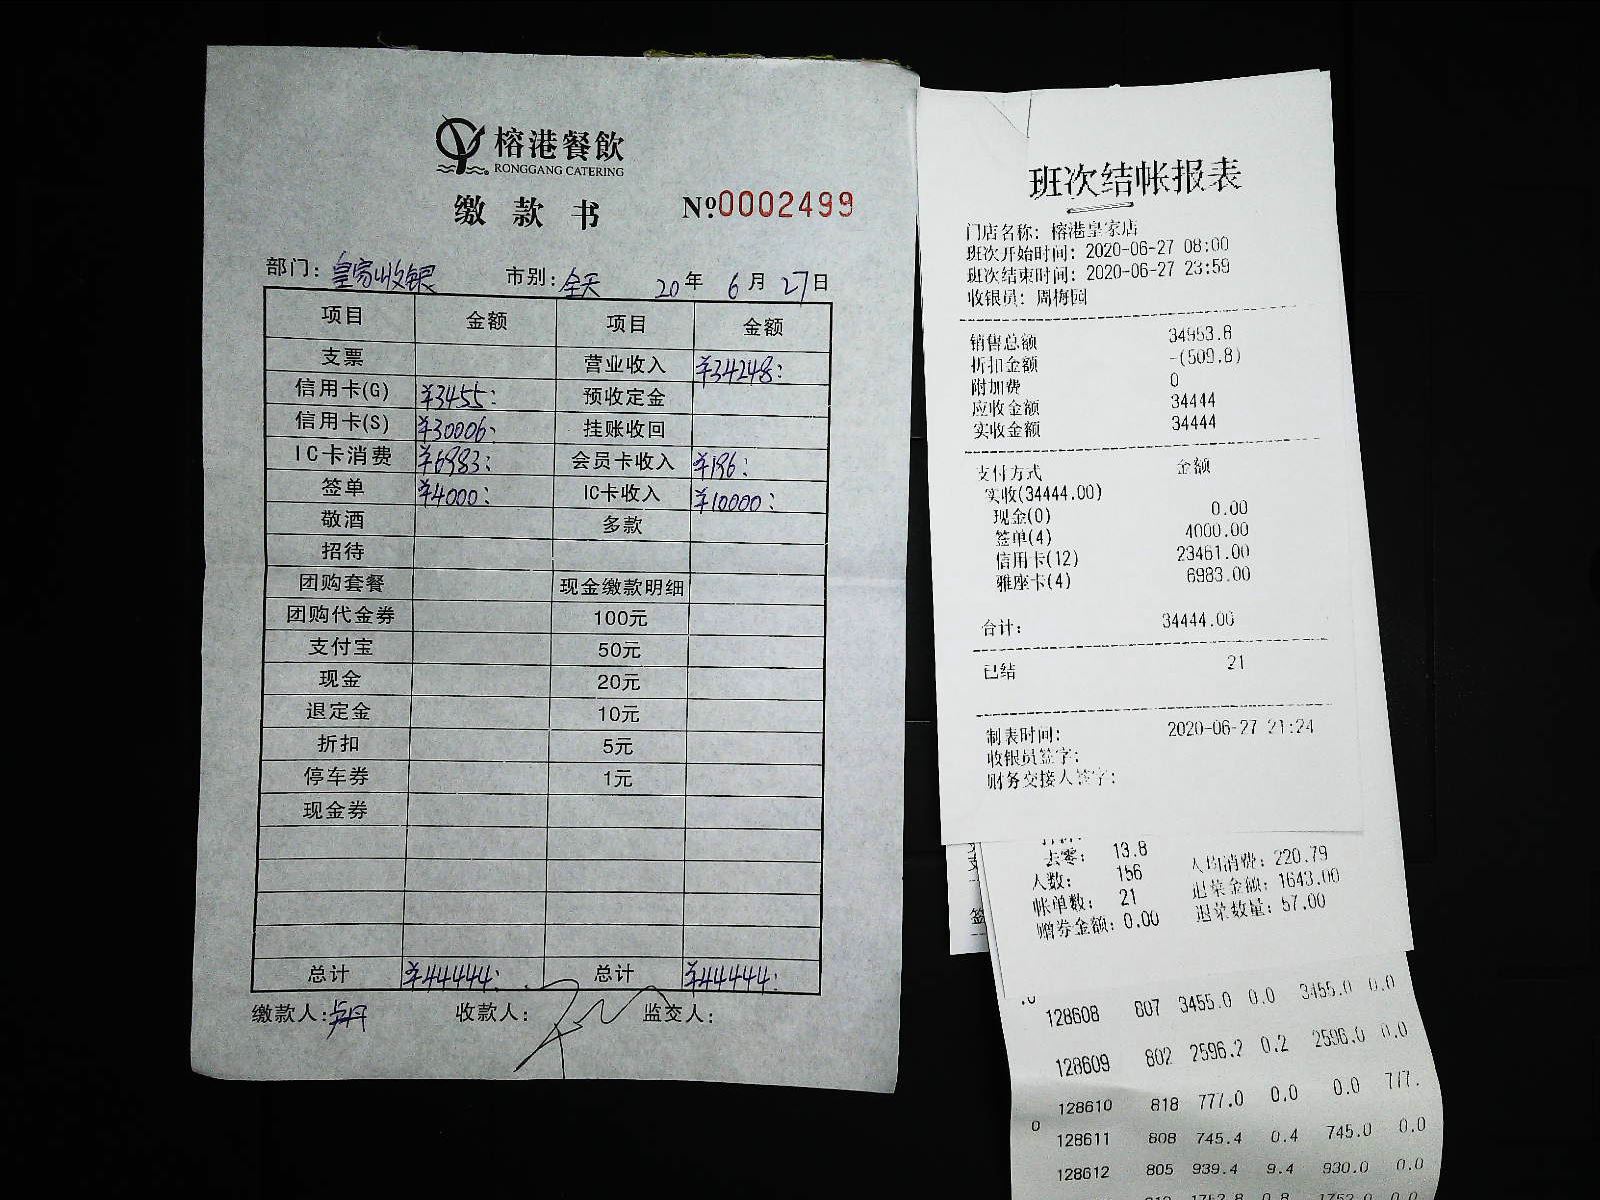 榕港餐飲
RONGGANG CATERING
缴款书 №0002499
部门: 皇家收银 市别: 全天 20年 6月 27日
项目 金额 项目 金额
支票 营业收入 ¥34248:
信用卡(G) ¥3455: 预收定金
信用卡(S) ¥30006: 挂账收回
IC卡消费 ¥6983: 会员卡收入 ¥196:
签单 ¥4000: IC卡收入 ¥10000:
敬酒 多款
招待
团购套餐 现金缴款明细
团购代金券 100元
支付宝 50元
现金 20元
退定金 10元
折扣 5元
停车券 1元
现金券
总计 ¥44444: 总计 ¥44444:
缴款人: 卢丹 收款人: 监交人:
班次结帐报表
门店名称: 榕港皇家店
班次开始时间: 2020-06-27 08:00
班次结束时间: 2020-06-27 23:59
收银员: 周梅园
销售总额 34953.8
折扣金额 -(509.8)
附加费 0
应收金额 34444
实收金额 34444
支付方式 金额
实收(34444.00)
现金(0) 0.00
签单(4) 4000.00
信用卡(12) 23461.00
雅座卡(4) 6983.00
合计: 34444.00
已结 21
制表时间: 2020-06-27 21:24
收银员签字:
财务交接人签字:
去零: 13.8 人均消费: 220.79
人数: 156 退菜金额: 1643.00
帐单数: 21 退菜数量: 57.00
赠券金额: 0.00
签
.0 128608 807 3455.0 0.0 3455.0 0.0
128609 802 2596.2 0.2 2596.0 0.0
128610 818 777.0 0.0 0.0 777.
0 128611 808 745.4 0.4 745.0 0.0
128612 805 939.4 9.4 930.0 0.0